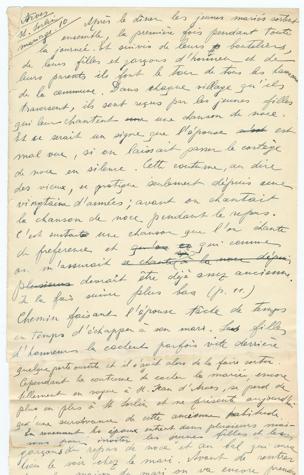 Arves
St. Sorlin
mariage 10
Après le dîner les jeunes mariés sortent
ensemble, la première fois pendant toute
la journée. Et suivis de leurs
de leurs filles et garçons d'honneur et de
leurs parents ils font le tour de tous les hameaux
de la commune. Dans chaque village qu'ils
traversent, ils sont reçus par les jeunes filles
qui leur chantent une chanson de noce.
Et ce serait un signe que l'épouse est
mal vue, si on laissait passer le cortège
de noce en silence. Cette coutume, au dire
des vieux, se pratique seulement depuis une
vingtaine d'années; avant on chantait
la chanson de noce pendant le repas.
C'est une chanson que l'on chante
de preference et qui comme
on m'assurait
devrait être déjà assez ancienne.
Je la fais suivre plus bas (p. 11)
Chemin faisant l'épouse tâche de temps
en temps d'échapper à son mari. Les filles
d'honneur la cachent parfois vite derrière
quelque porte ouverte et il s'agit alors de la faire sortir.
Cependant la coutume de cacher la mariée encore
tellement en vogue à St Jean d'Arves, se perd de
plus en plus à St Sorlin et ne présente aujourd'hui
que une survivance de cette ancienne habitude.
les époux entrent dans plusieurs maisons
pour inviter les jeunes filles et les
garçons du repas de noce et au bal qui aura
lieu le soir chez le mari. Avant de rentrer
mari on va encore